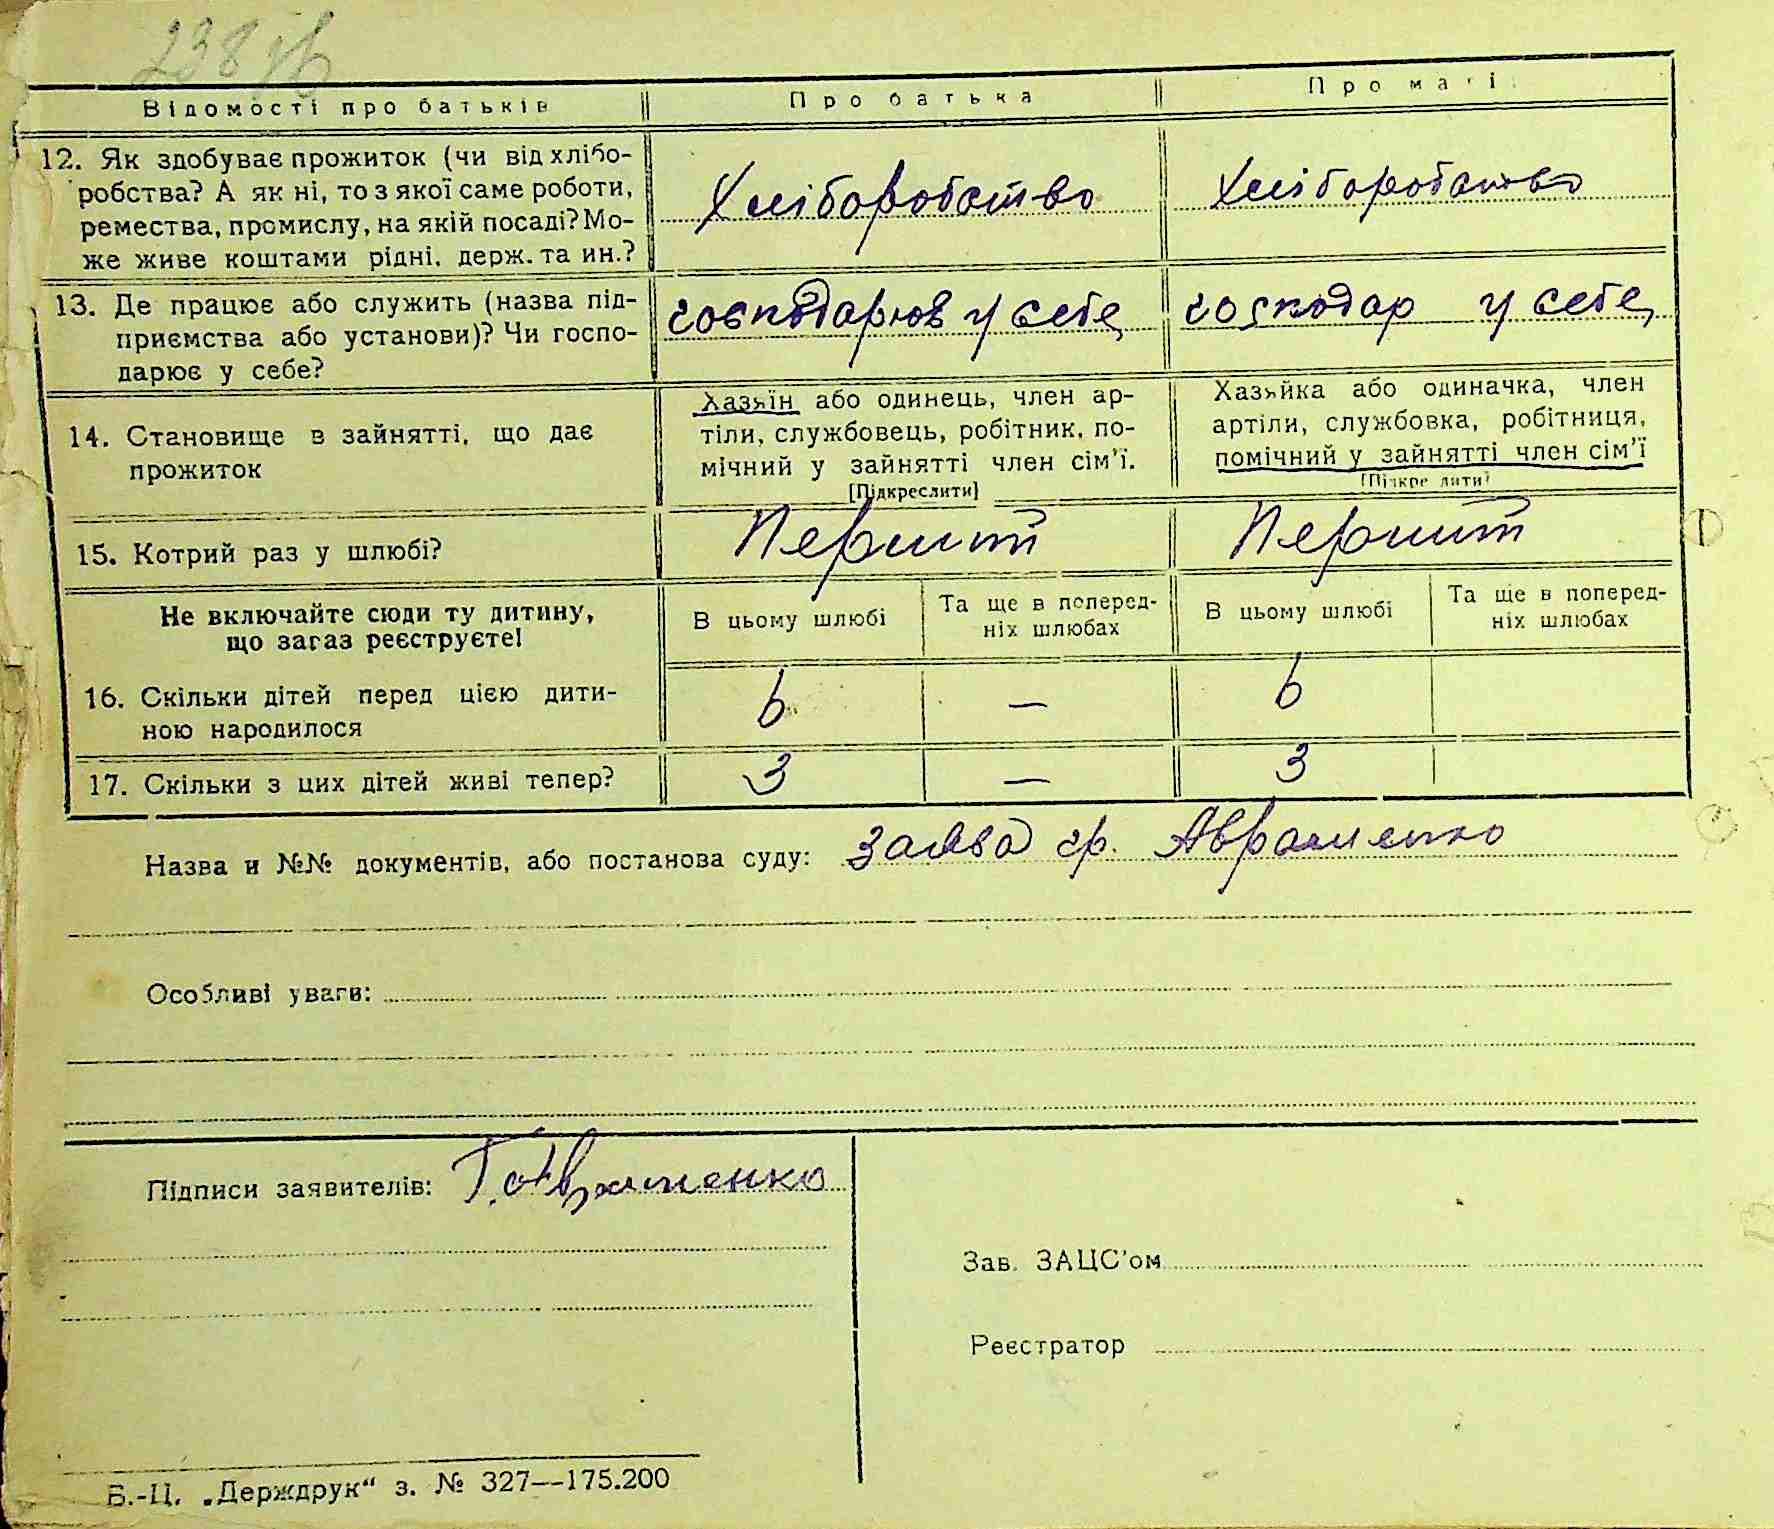 238 зв
Відомості про батьків Про батька Про матір
12. Як здобуває прожиток (чи від хлібо-
робства? А як ні, то з якої саме роботи,
ремества, промислу, на якій посаді? Мо-
же живе коштами рідні, держ. та ин.?
Хліборобство Хліборобство
13. Де працює або служить (назва під-
приємства або установи)? Чи госпо-
дарює у себе?
господарює у себе господар у себе
14. Становище в зайнятті, що дає
прожиток
Хазяїн або одинець, член ар-
тіли, службовець, робітник, по-
мічний у зайнятті член сім'ї.
[Підкреслити]
Хазяйка або одиначка, член
артіли, службовка, робітниця,
помічний у зайнятті член сім'ї
[Підкреслити]
15. Котрий раз у шлюбі? Перший Перший
Не включайте сюди ту дитину,
що загаз реєструєте!
В цьому шлюбі Та ще в поперед-
ніх шлюбах
В цьому шлюбі Та ще в поперед-
ніх шлюбах
16. Скільки дітей перед цією дити-
ною народилося
6 — 6
17. Скільки з цих дітей живі тепер? 3 — 3
Назва и №№ документів, або постанова суду: заява гр. Авраменко
Особливі уваги:
Підписи заявителів: Г. Авраменко
Зав. ЗАЦС'ом
Реєстратор
Б.-Ц. „Держдрук“ з. № 327—175.200